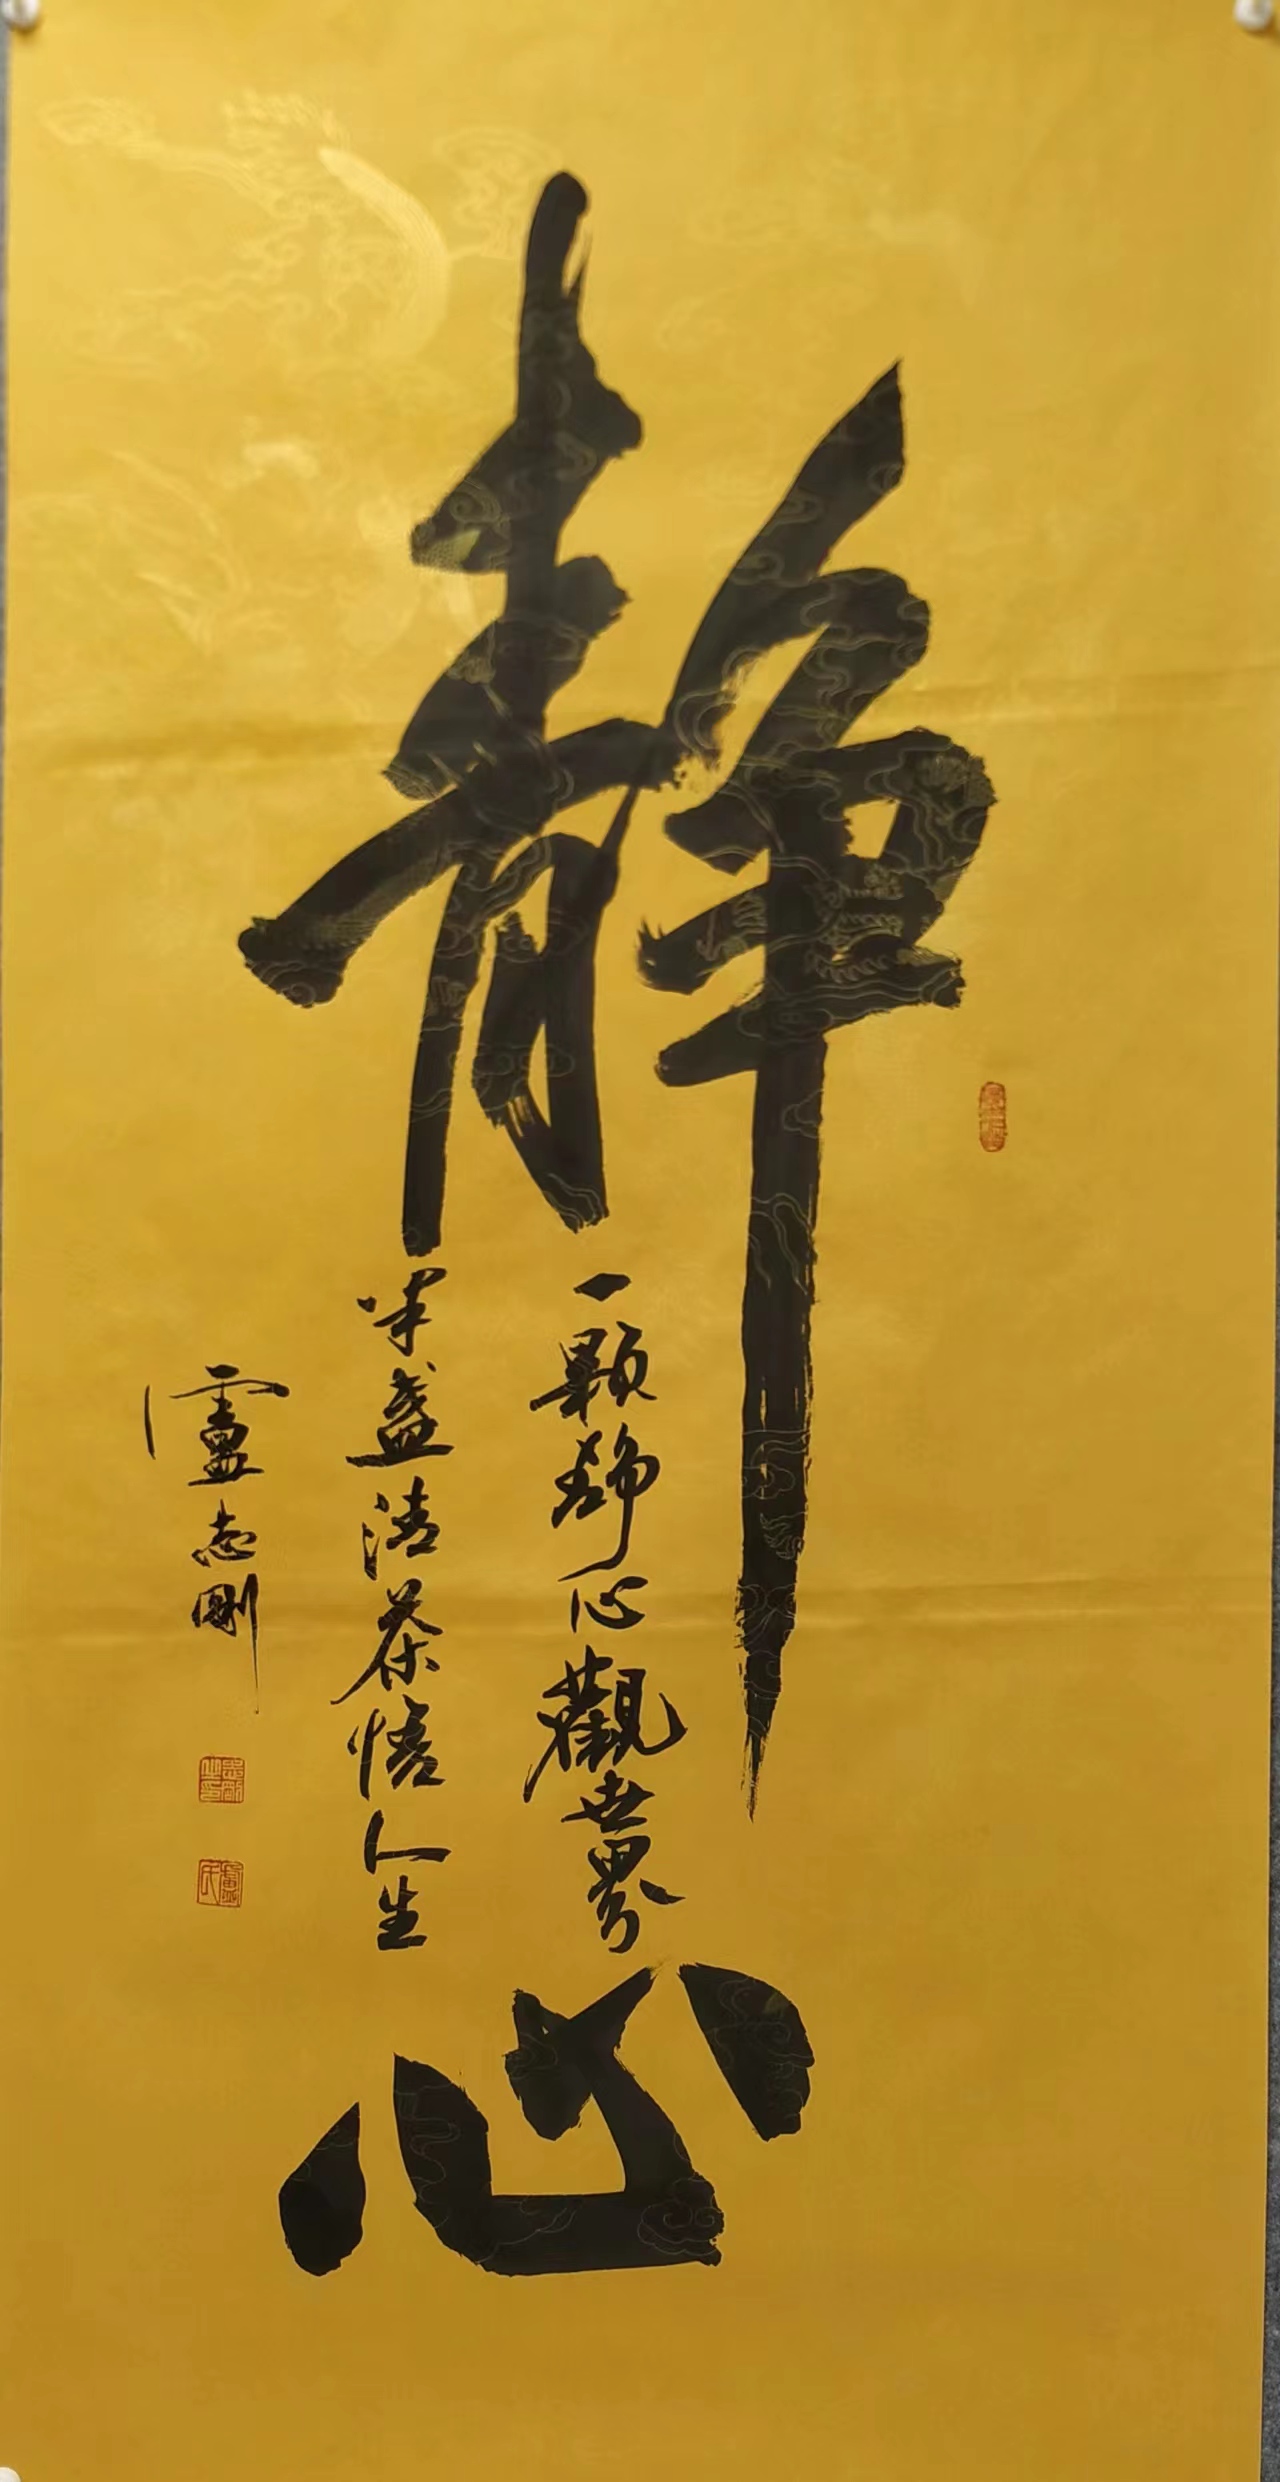 靜心
一顆靜心觀世界
半盞清茶悟人生
盧志剛